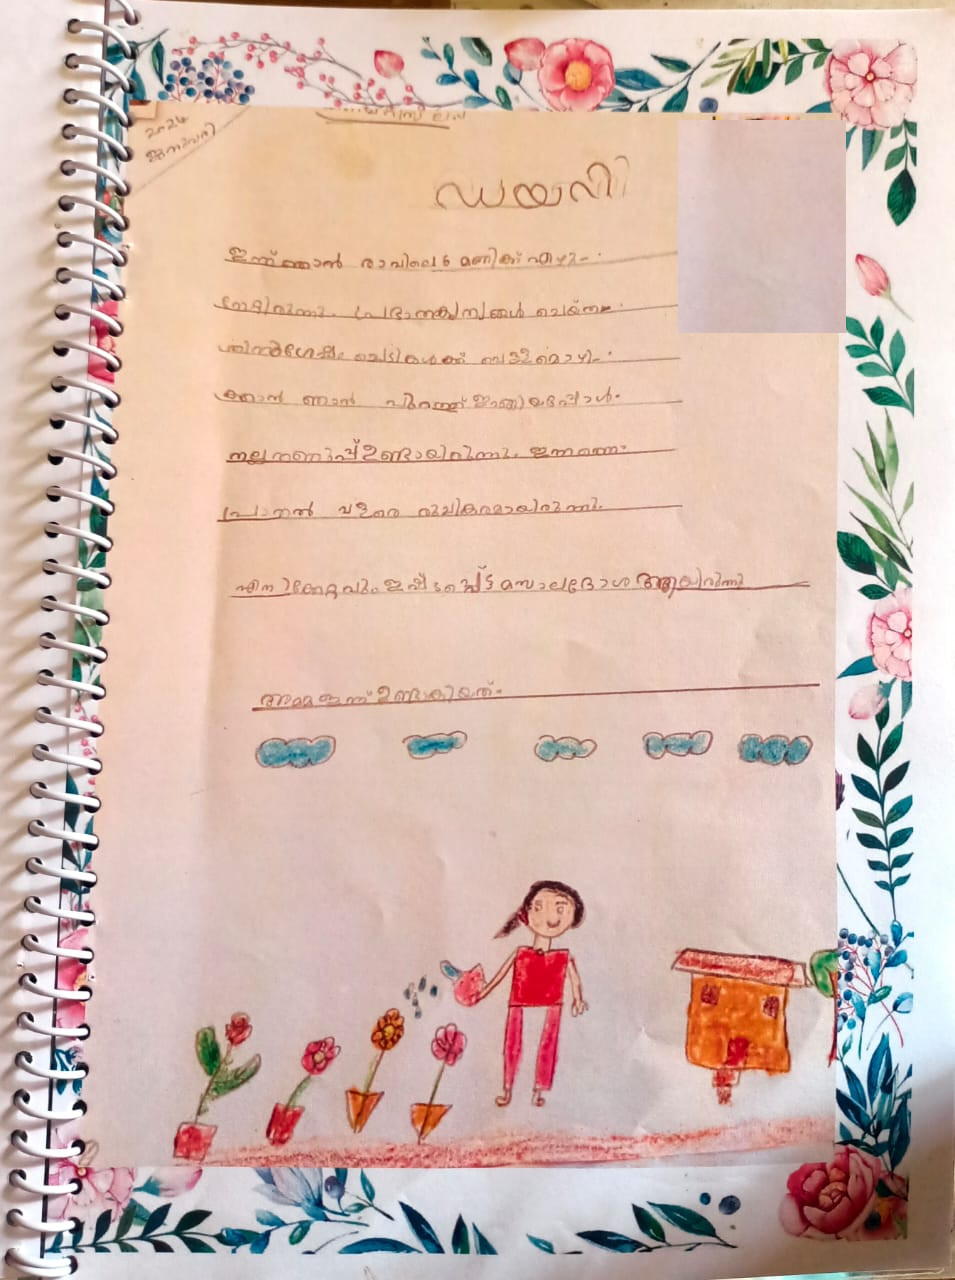 2024
ജനുവരി
ഡയറി
ഇന്ന് ഞാൻ രാവിലെ 6 മണിക്ക് എഴു-
ന്നേറ്റിരുന്നു. പ്രഭാതകൃത്യങ്ങൾ ചെയ്തു.
അതിനുശേഷം ചെടികൾക്ക് വെള്ളമൊഴി-
ക്കാൻ ഞാൻ പുറത്ത് ഇറങ്ങിയപ്പോൾ.
നല്ല തണുപ്പ് ഉണ്ടായിരുന്നു. ഇന്നത്തെ
പ്രാതൽ വളരെ രുചികരമായിരുന്നു.
എനിക്കേറ്റവും ഇഷ്ടപ്പെട്ട മസാലദോശ ആയിരുന്നു
അമ്മ ഇന്ന് ഉണ്ടാക്കിയത്.